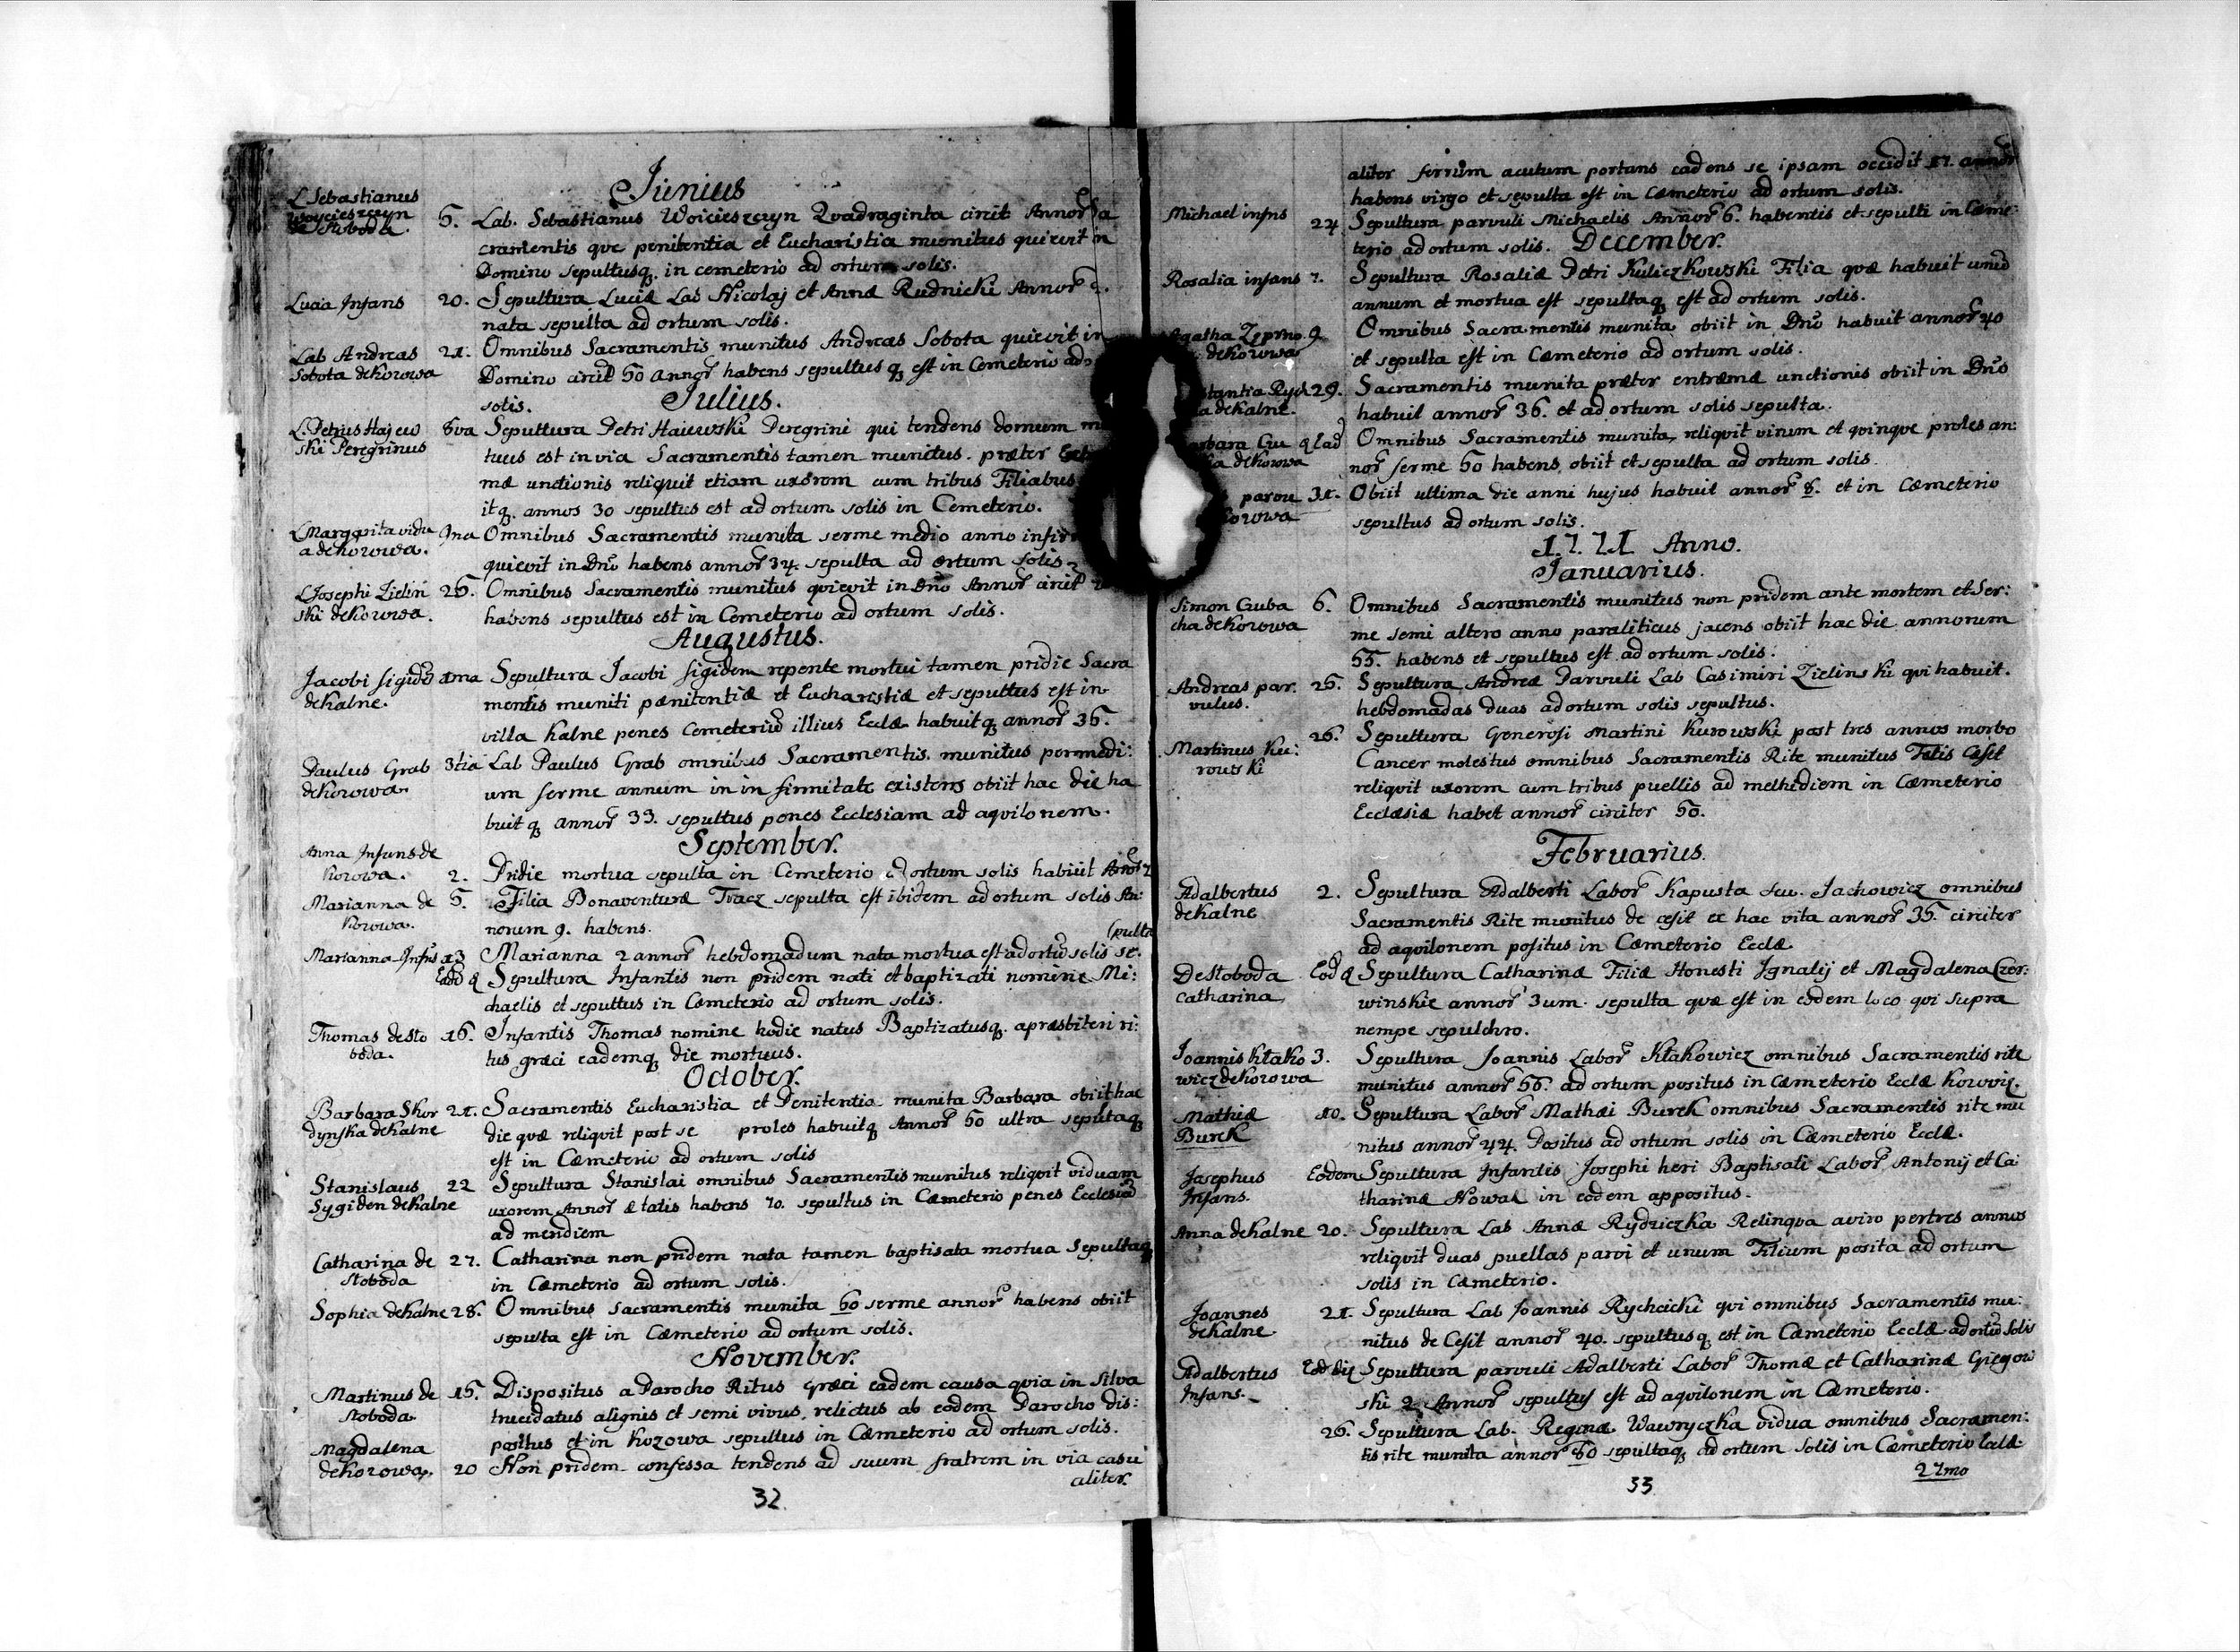 Junius
L Sebastianus
Woycieszczyn
de Stoboda.
5. Lab. Sebastianus Woicieszczyn Qvadraginta circit Annor Sa
cramentis qve penitentia et Eucharistia munitus quievit in
Domino sepultusq. in cemeterio ad ortum solis.
Lucia Infans
20. Sepultura Luciæ Lab Nicolaj et Annæ Rudnicki Annor 2.
nata sepulta ad ortum solis.
Lab Andreas
Sobota de Kozowa
21. Omnibus Sacramentis munitus Andreas Sobota quievit in
Domino circit 50 annor habens sepultus q est in Cemeterio ad
solis.
Julius.
L. Petrus Hajew
ski Peregrinus
8va Sepultura Petri Haiewski Peregrini qui tendens domum
tuus est in via Sacramentis tamen munitus. præter
mæ unctionis reliquit etiam uxorem cum tribus Filiabus
itq. annos 30 sepultus est ad ortum solis in Cemeterio.
L Margarita vidu
a de Kozowa.
9na Omnibus Sacramentis munita serme medio anno
quievit in Dno habens annor 34. sepulta ad ortum solis
L Josephi Zielin
ski de Kozowa.
25. Omnibus Sacramentis munitus qvievit in Dno Annor circit
habens sepultus est in Cemeterio ad ortum solis.
Augustus.
Jacobi sigide
de Kalne.
1ma Sepultura Jacobi sigidem repente mortui tamen pridie Sacra
mentis muniti pænitentiæ et Eucharistiæ et sepultus est in
villa Kalne penes Cemeteriu illius Ecclæ habuitq annor 36.
Paulus Grab
de Kozowa.
3tia Lab Paulus Grab omnibus Sacramentis munitus per medi:
um serme annum in in firmitate existens obiit hac die ha
buit q annor 33. sepultus penes Ecclesiam ad aqvilonem.
September.
Anna Infans de
Kozowa.
2. Pridie mortua sepulta in Cemeterio ad ortum solis habuit Anor
Marianna de
Kozowa.
5. Filia Bonaventuræ Tracz sepulta est ibidem ad ortum solis An:
norum 9. habens.
(pulta
Marianna Infns
13 Marianna 2 annor hebdomadum nata mortua est ad ortu solis se.
Ead q Sepultura Infantis non pridem nati et baptizati nomine Mi:
chaelis et sepultus in Cæmeterio ad ortum solis.
Thomas de Sto
boda.
16. Infantis Thomas nomine hodie natus Baptizatusq. a præsbiteri ri:
tus græci eademq die mortuus.
October.
Barbara Skor
dynska de Kalne
21. Sacramentis Eucharistia et Penitentia munita Barbara obiit hac
die quæ reliqvit post se proles habuitq Annor 50 ultra sepultaq
est in Cæmeterio ad ortum solis
Stanislaus
Sygiden de Kalne
22 Sepultura Stanislai omnibus Sacramentis munitus reliqvit viduam
uxorem Annor ætatis habens 70. sepultus in Cæmeterio penes Ecclesia
ad meridiem
Catharina de
Stoboda
27. Catharina non pridem nata tamen baptisata mortua Sepultaq
in Cæmeterio ad ortum solis.
Sophia de Kalne
28. Omnibus sacramentis munita 60 serme annor habens obiit
sepulta est in Cæmeterio ad ortum solis.
November.
Martinus de
Stoboda.
15. Dispositus a Parocho Ritus Græci eadem causa qvia in silva
trucidatus a lignis et semi vivus, relictus ab eodem Parocho dis:
positus et in Kozowa sepultus in Cæmeterio ad ortum solis.
Magdalena
de Kozowa.
20 Non pridem confessa tendens ad suum fratrem in via casu
aliter.
32.
aliter ferrum acutum portans cadens se ipsam occidit 17. annor
habens virgo et sepulta est in Cæmeterio ad ortum solis.
Michael infns
24 Sepultura parvuli Michaelis Annor 6. habentis et sepulti in Cæme:
terio ad ortum solis. December.
Rosalia infans
7. Sepultura Rosaliæ Petri Kuliczkowski Filia qvæ habuit unu
annum et mortua est sepultaq est ad ortum solis.
Agatha
de Kozowa
9. Omnibus Sacramentis munita obiit in Dno habuit annor 40
et sepulta est in Cæmeterio ad ortum solis.
stantia Rych
a de Kalne.
29. Sacramentis munita præter extræmæ unctionis obiit in Dno
habuit annor 36. et ad ortum solis sepulta.
rbara
ka de Kozowa
q Ead Omnibus Sacramentis munita, reliqvit virum et qvinqve proles an:
nor serme 50 habens, obiit et sepulta ad ortum solis.
parvu
ozowa
31. Obiit ultima die anni hujus habuit annor 8. et in Cæmeterio
sepultus ad ortum solis.
1771 Anno.
Januarius.
Simon Cuba
cha de Kozowa
6. Omnibus Sacramentis munitus non pridem ante mortem et ser:
me semi altero anno paraliticus jacens obiit hac die annorum
55. habens et sepultus est ad ortum solis.
Andreas par.
vulus.
25. Sepultura Andreæ Parvuli Lab Casimiri Zielinski qvi habuit.
hebdomadas duas ad ortum solis sepultus.
Martinus Ku:
rowski
26. Sepultura Generosi Martini Kurowski post tres annos morbo
Cancer molestus omnibus Sacramentis Rite munitus Fatis Cesit
reliqvit uxorem cum tribus puellis ad methidiem in Cæmeterio
Ecclæsiæ habet annor circiter 50.
Februarius.
Adalbertus
de Kalne
2. Sepultura Adalberti Labor Kapusta seu Jachowicz omnibus
Sacramentis Rite munitus de cesit ex hac vita annor 35. circiter
ad aqvilonem positus in Cæmeterio Ecclæ.
De Stoboda
Catharina
Eod q Sepultura Catharinæ Filiæ Honesti Ignatij et Magdalena Czer:
winskie annor 3um. sepulta qvæ est in eodem loco qvi supra
nempe sepulchro.
Joannis Kłako
wicz de Kozowa
3. Sepultura Joannis Labor Kłakowicz omnibus Sacramentis rite
munitus annor 56. ad ortum positus in Cæmeterio Ecclæ Kozoviz.
Mathiæ
Burek
10. Sepultura Labor Mathæi Burek omnibus Sacramentis rite mu
nitus annor 44. Positus ad ortum solis in Cæmeterio Ecclæ.
Josephus
Infans.
Eodem Sepultura Infantis Josephi heri Baptisati Labor Antonij et Ca
tharinæ Nowak in eodem appositus.
Anna de Kalne
20. Sepultura Lab Annæ Rydziczka Relinqva a viro per tres annos
reliqvit duas puellas parvi et unum Filium posita ad ortum
solis in Cæmeterio.
Joannes
de Kalne
21. Sepultura Lab Joannis Rychcicki qvi omnibus Sacramentis mu:
nitus de Cesit annor 40. sepultusq est in Cæmeterio Ecclæ ad ortu solis
Adalbertus
Infans.
Eod die Sepultura parvuli Adalberti Labor Thomæ et Catharinæ Gregow
ski 2 Annor sepultus est ad aqvilonem in Cæmeterio.
26. Sepultura Lab. Reginæ Wawryczka vidua omnibus Sacramen:
tis rite munita annor 80 sepultaq ad ortum solis in Cæmeterio
27mo
33